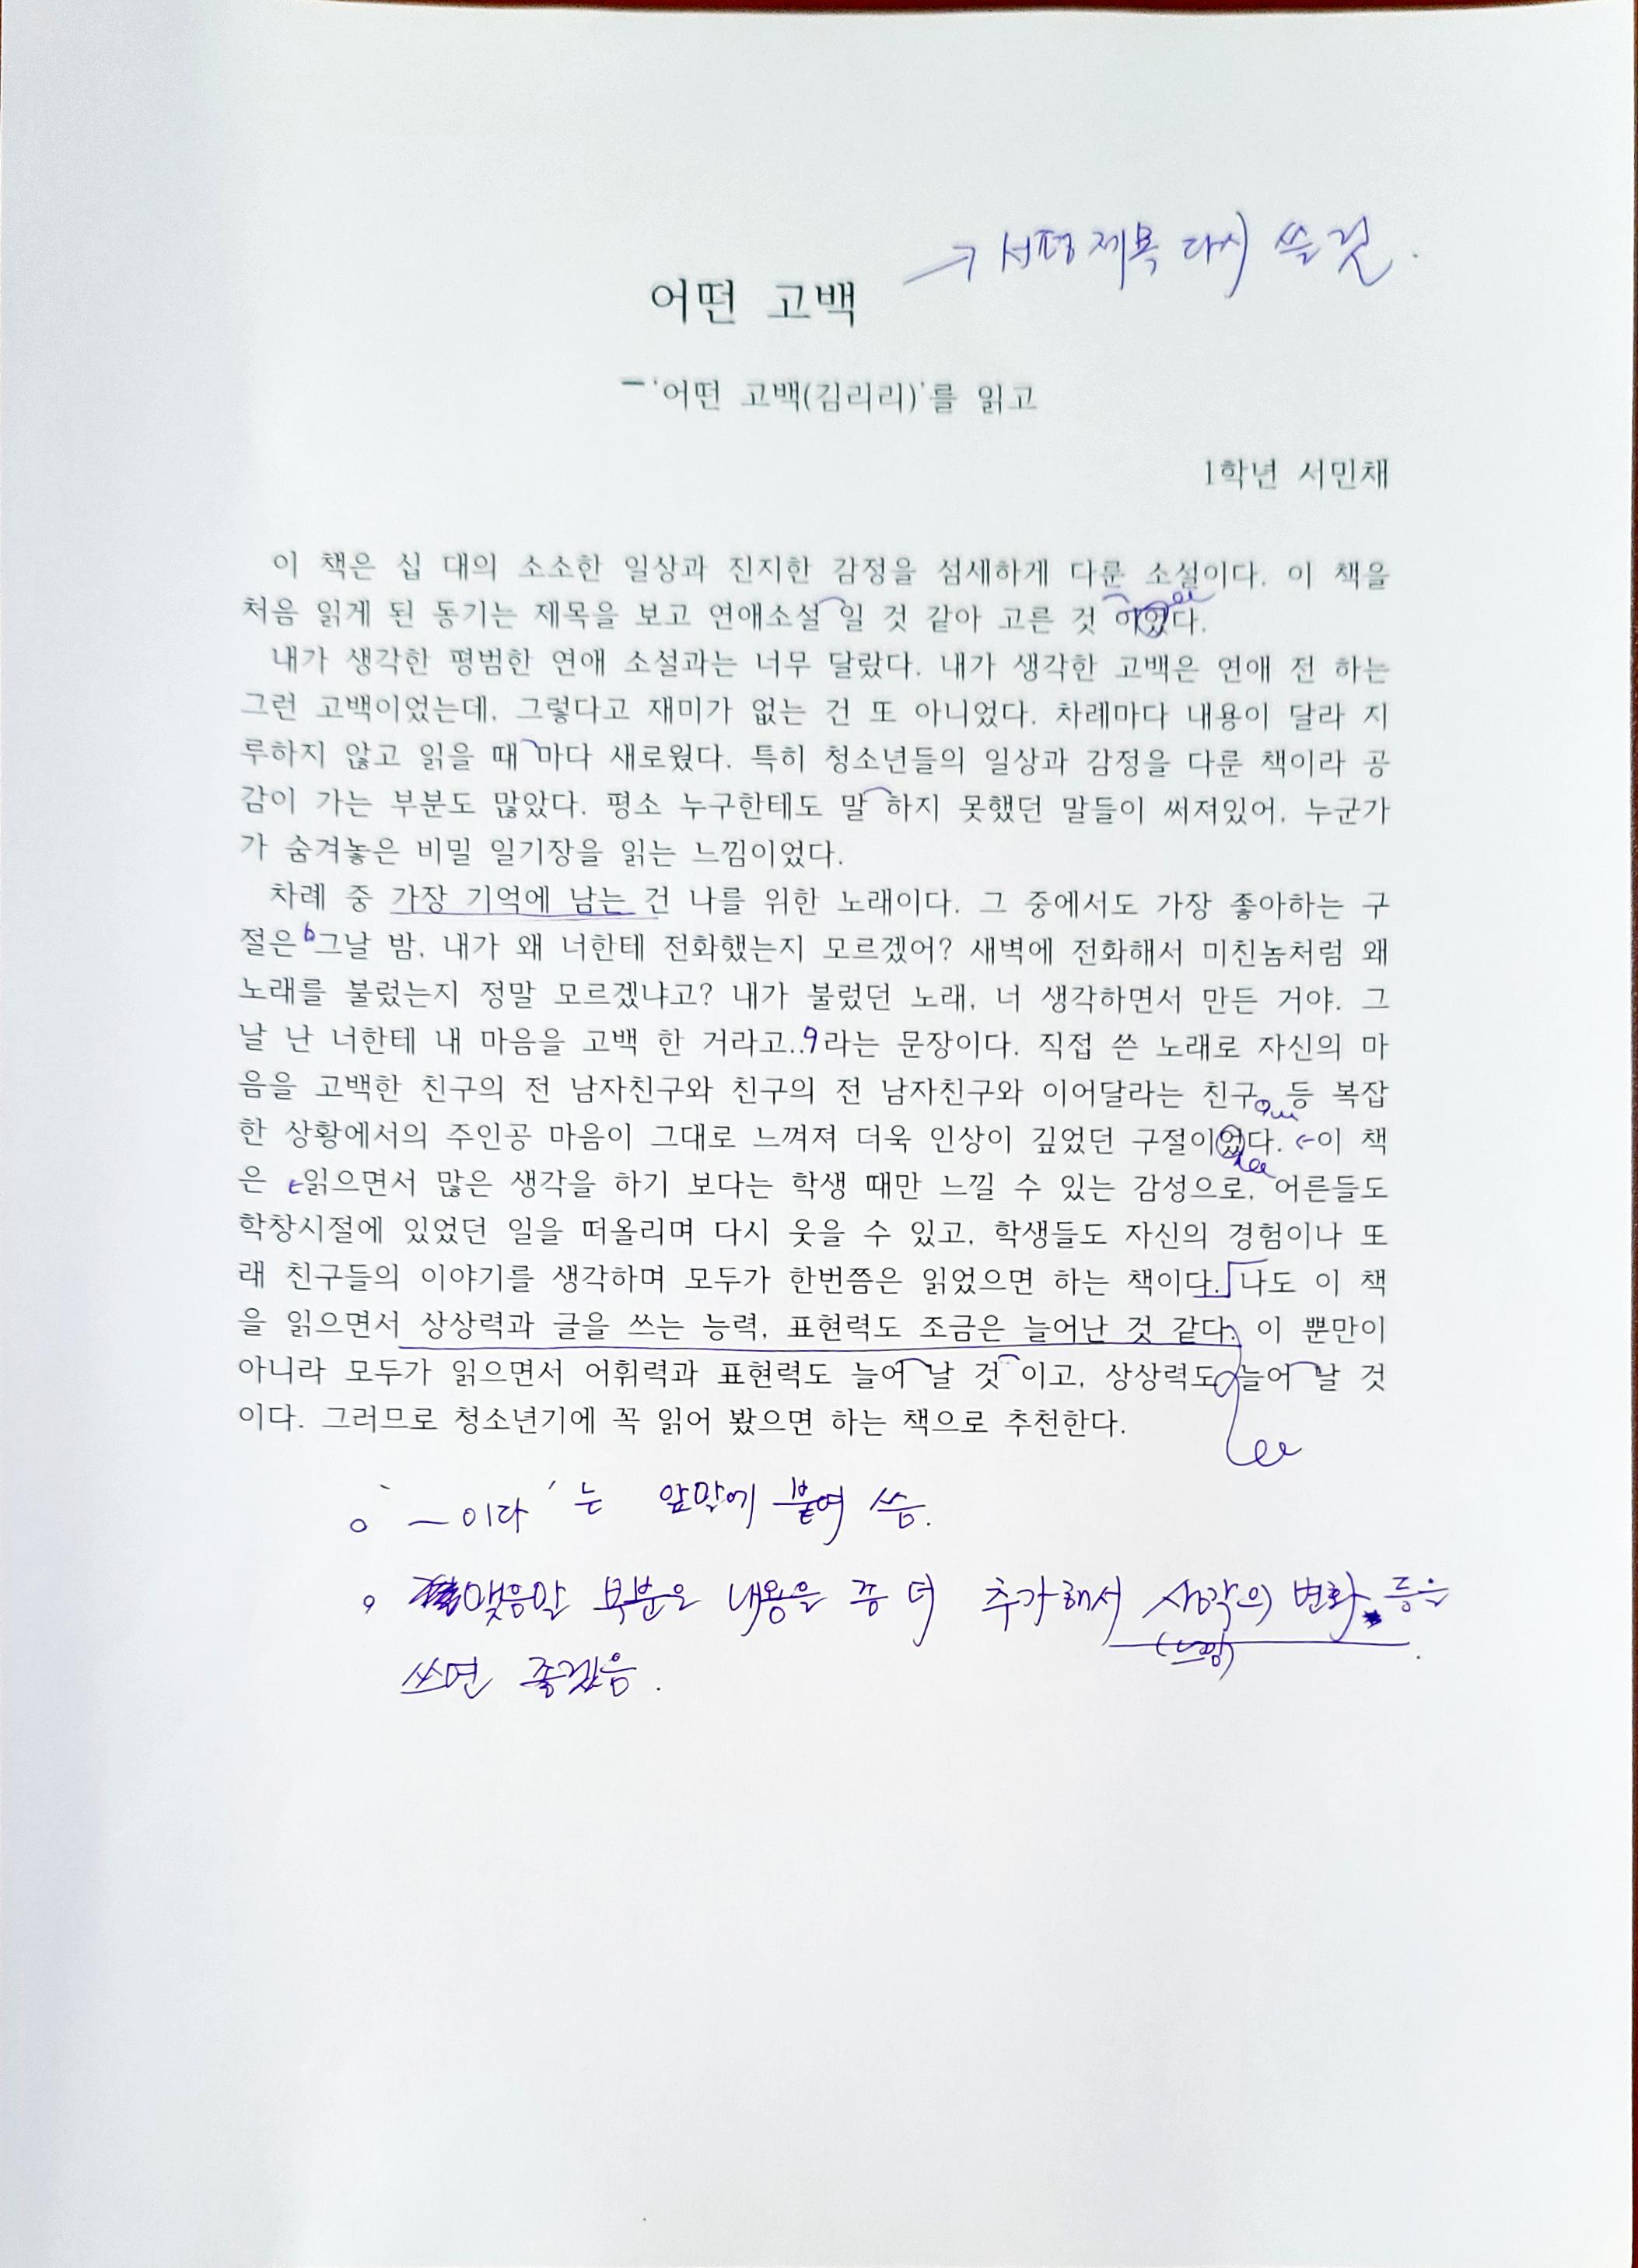 → 서평 제목 다시 쓸 것.
어떤 고백
-'어떤 고백(김리리)'를 읽고
1학년 서민채
이 책은 십 대의 소소한 일상과 진지한 감정을 섬세하게 다룬 소설이다. 이 책을
처음 읽게 된 동기는 제목을 보고 연애소설 일 것 같아 고른 것 이었다.
내가 생각한 평범한 연애 소설과는 너무 달랐다. 내가 생각한 고백은 연애 전 하는
그런 고백이었는데, 그렇다고 재미가 없는 건 또 아니었다. 차례마다 내용이 달라 지
루하지 않고 읽을 때 마다 새로웠다. 특히 청소년들의 일상과 감정을 다룬 책이라 공
감이 가는 부분도 많았다. 평소 누구한테도 말 하지 못했던 말들이 써져있어, 누군가
가 숨겨놓은 비밀 일기장을 읽는 느낌이었다.
차례 중 가장 기억에 남는 건 나를 위한 노래이다. 그 중에서도 가장 좋아하는 구
절은 '그날 밤, 내가 왜 너한테 전화했는지 모르겠어? 새벽에 전화해서 미친놈처럼 왜
노래를 불렀는지 정말 모르겠냐고? 내가 불렀던 노래, 너 생각하면서 만든 거야. 그
날 난 너한테 내 마음을 고백 한 거라고..'라는 문장이다. 직접 쓴 노래로 자신의 마
음을 고백한 친구의 전 남자친구와 친구의 전 남자친구와 이어달라는 친구 등 복잡
한 상황에서의 주인공 마음이 그대로 느껴져 더욱 인상이 깊었던 구절이었다. 이 책
은 읽으면서 많은 생각을 하기 보다는 학생 때만 느낄 수 있는 감성으로, 어른들도
학창시절에 있었던 일을 떠올리며 다시 웃을 수 있고, 학생들도 자신의 경험이나 또
래 친구들의 이야기를 생각하며 모두가 한번쯤은 읽었으면 하는 책이다. 나도 이 책
을 읽으면서 상상력과 글을 쓰는 능력, 표현력도 조금은 늘어난 것 같다. 이 뿐만이
아니라 모두가 읽으면서 어휘력과 표현력도 늘어 날 것 이고, 상상력도 늘어 날 것
이다. 그러므로 청소년기에 꼭 읽어 봤으면 하는 책으로 추천한다.
○ '—이다'는 앞말에 붙여 씀.
○ 맺음말 부분은 내용을 좀 더 추가해서 생각의 변화 등을
(느낌)
쓰면 좋겠음.